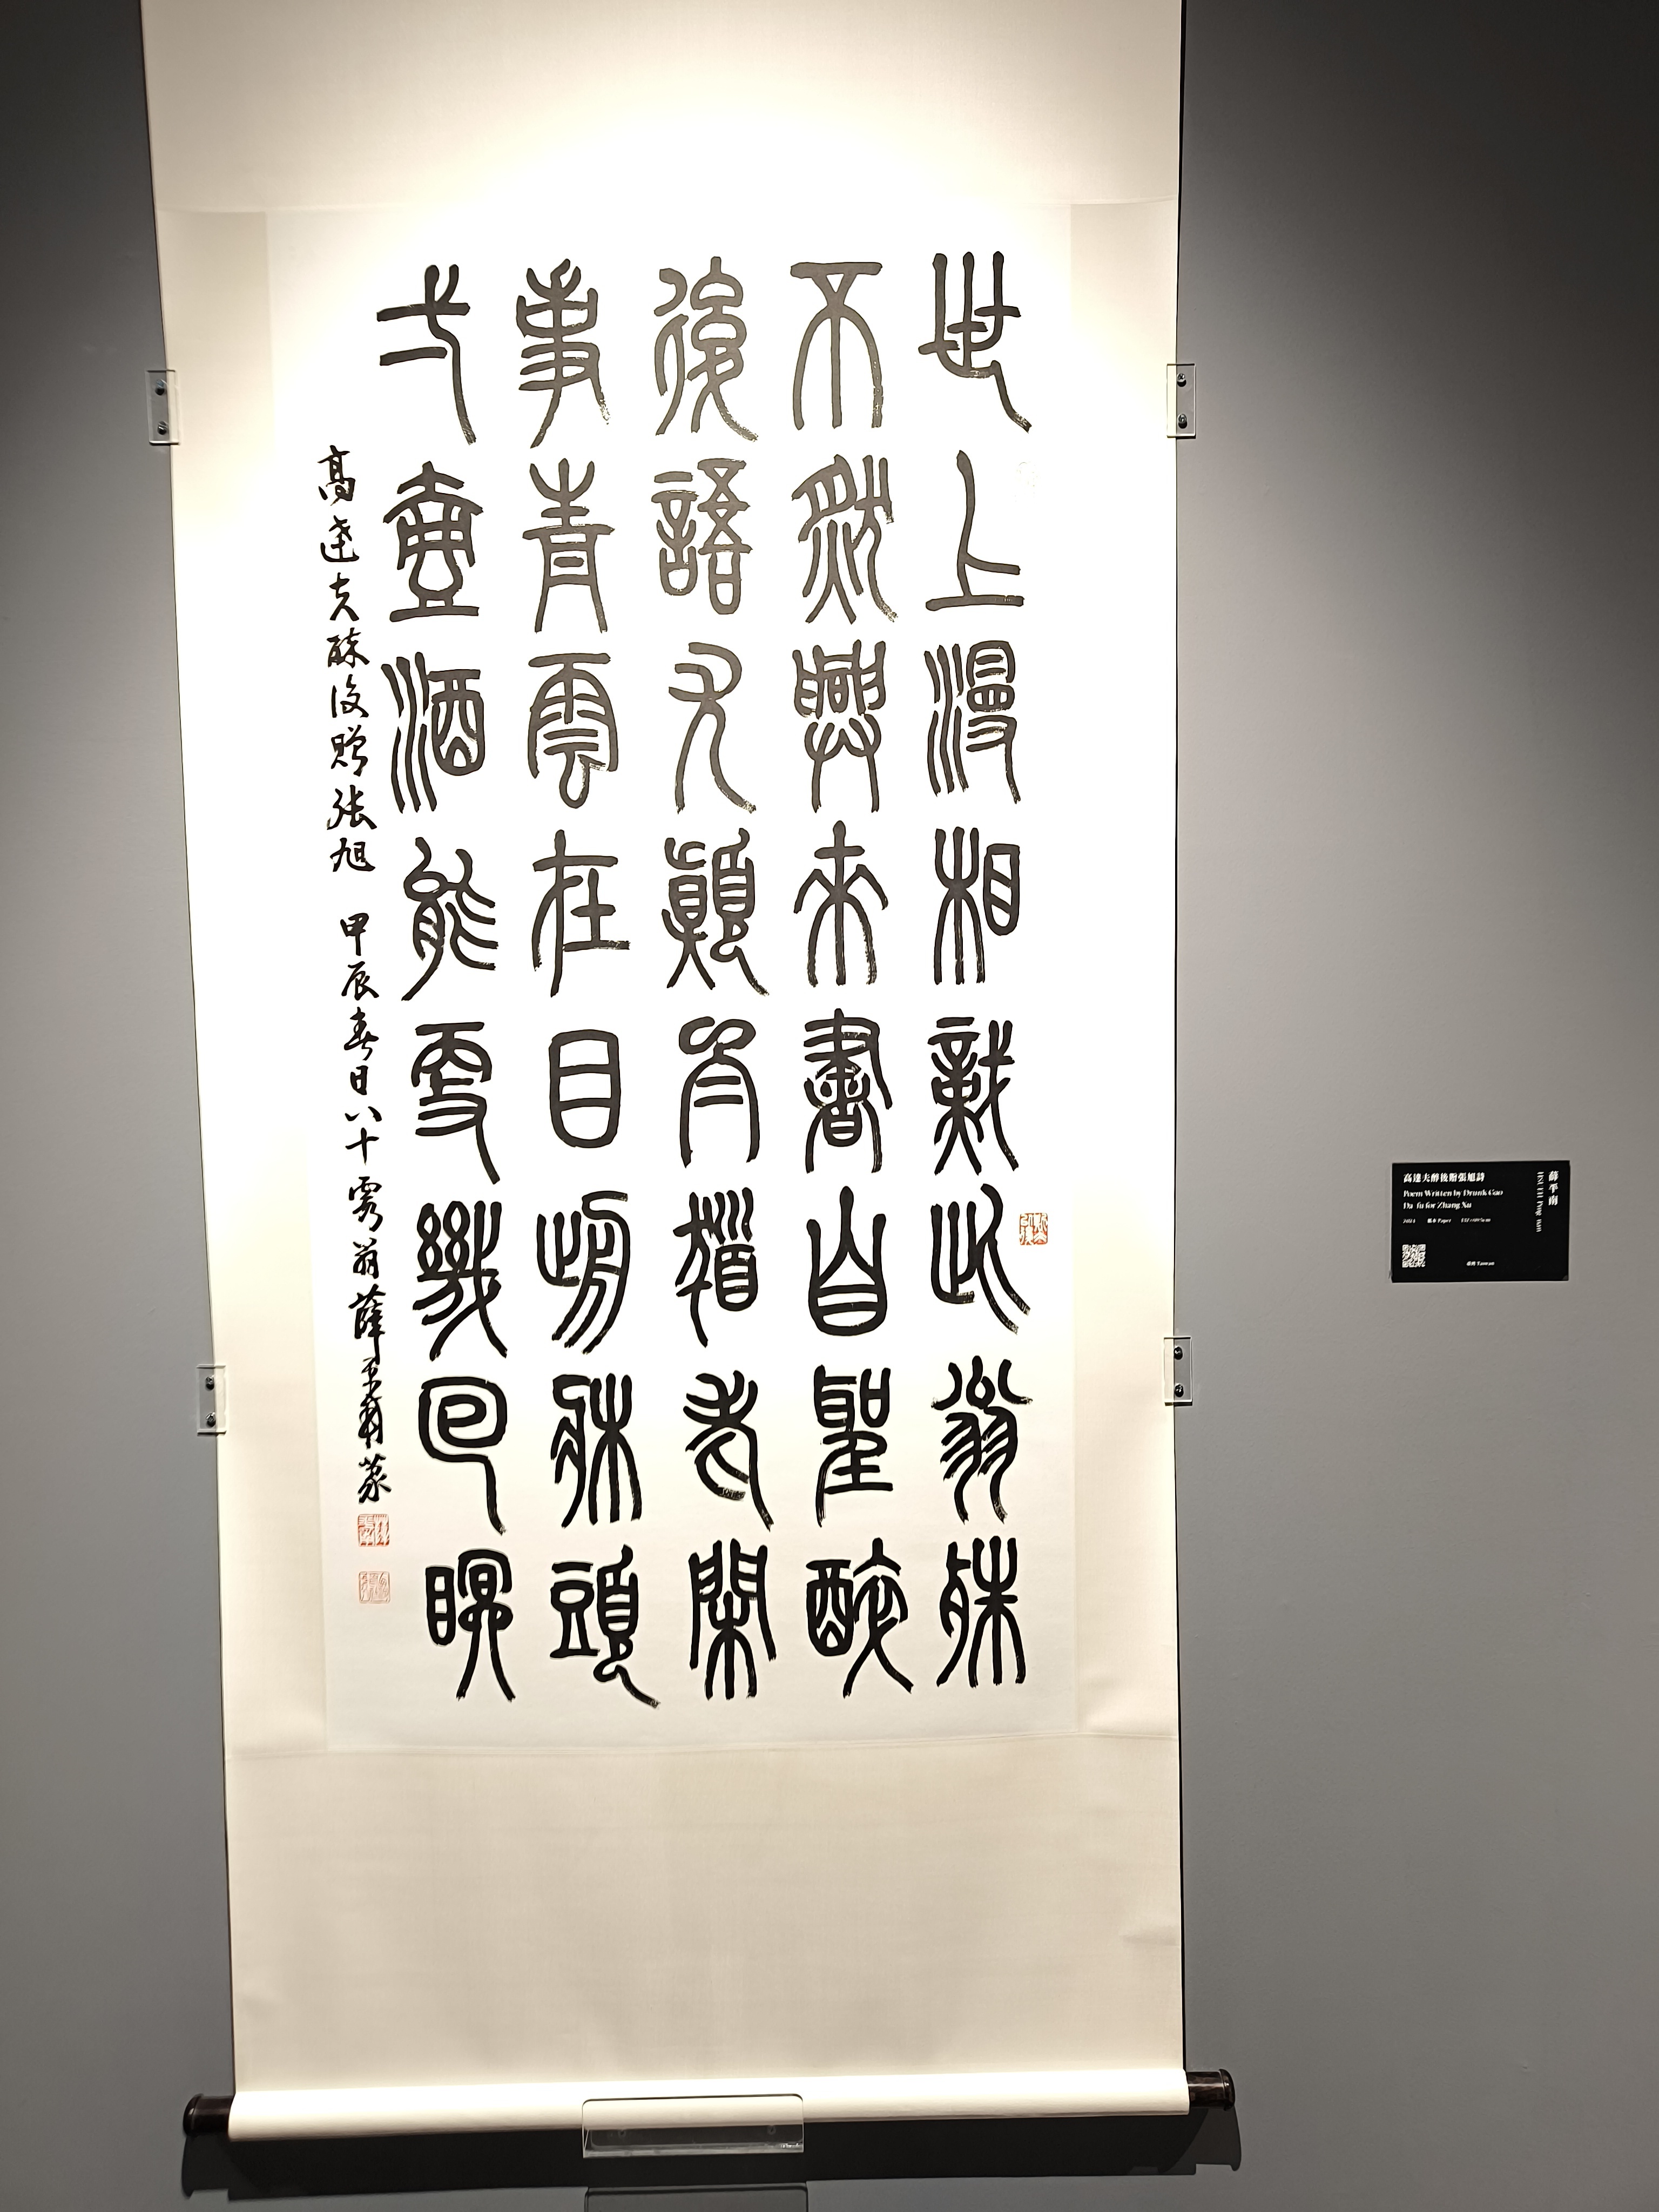 世上漫相識此翁殊
不然興來書自聖醉
後語尤顛白髮老閑
事青雲在目歬牀頭
弌壺酒能更幾回眠
高達夫醉後贈張旭 甲辰春日八十翁薛平南篆
高達夫醉後贈張旭詩
Poem Written by Drunk Gao
Da-fu for Zhang Xu
2024 紙本 Paper
薛平南
HSUEH Ping-nan
臺灣 Taiwan